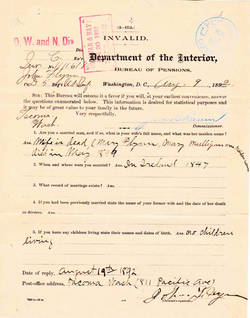 (3-402.)
INVALID.
O. W. and N. Div
Department of the Interior,
BUREAU OF PENSIONS,
Washington, D. C., Aug. 9, 1892
John Flynn
SIR: This Bureau will esteem it a favor if you will, at your earliest convenience, answer
the questions enumerated below. This information is desired for statistical purposes and
may be of great value to your family in the future.
Very respectfully,
Tacoma
Wash
Commissioner.
1. Are you a married man, and if so, what is your wife's full name, and what was her maiden name?
Wife is dead (Mary Flynn, Mary Mulligan
died in May
2. When and where were you married?
In Ireland 1847
3. What record of marriage exists?
4. If you had been previously married state the name of your former wife and the date of her death
or divorce.
5. If you have any children living state their names and dates of birth. Ans
no children
living
Date of reply, August 19th 1892
Post-office address, Tacoma Wash (811 Pacific Ave)
John Flynn